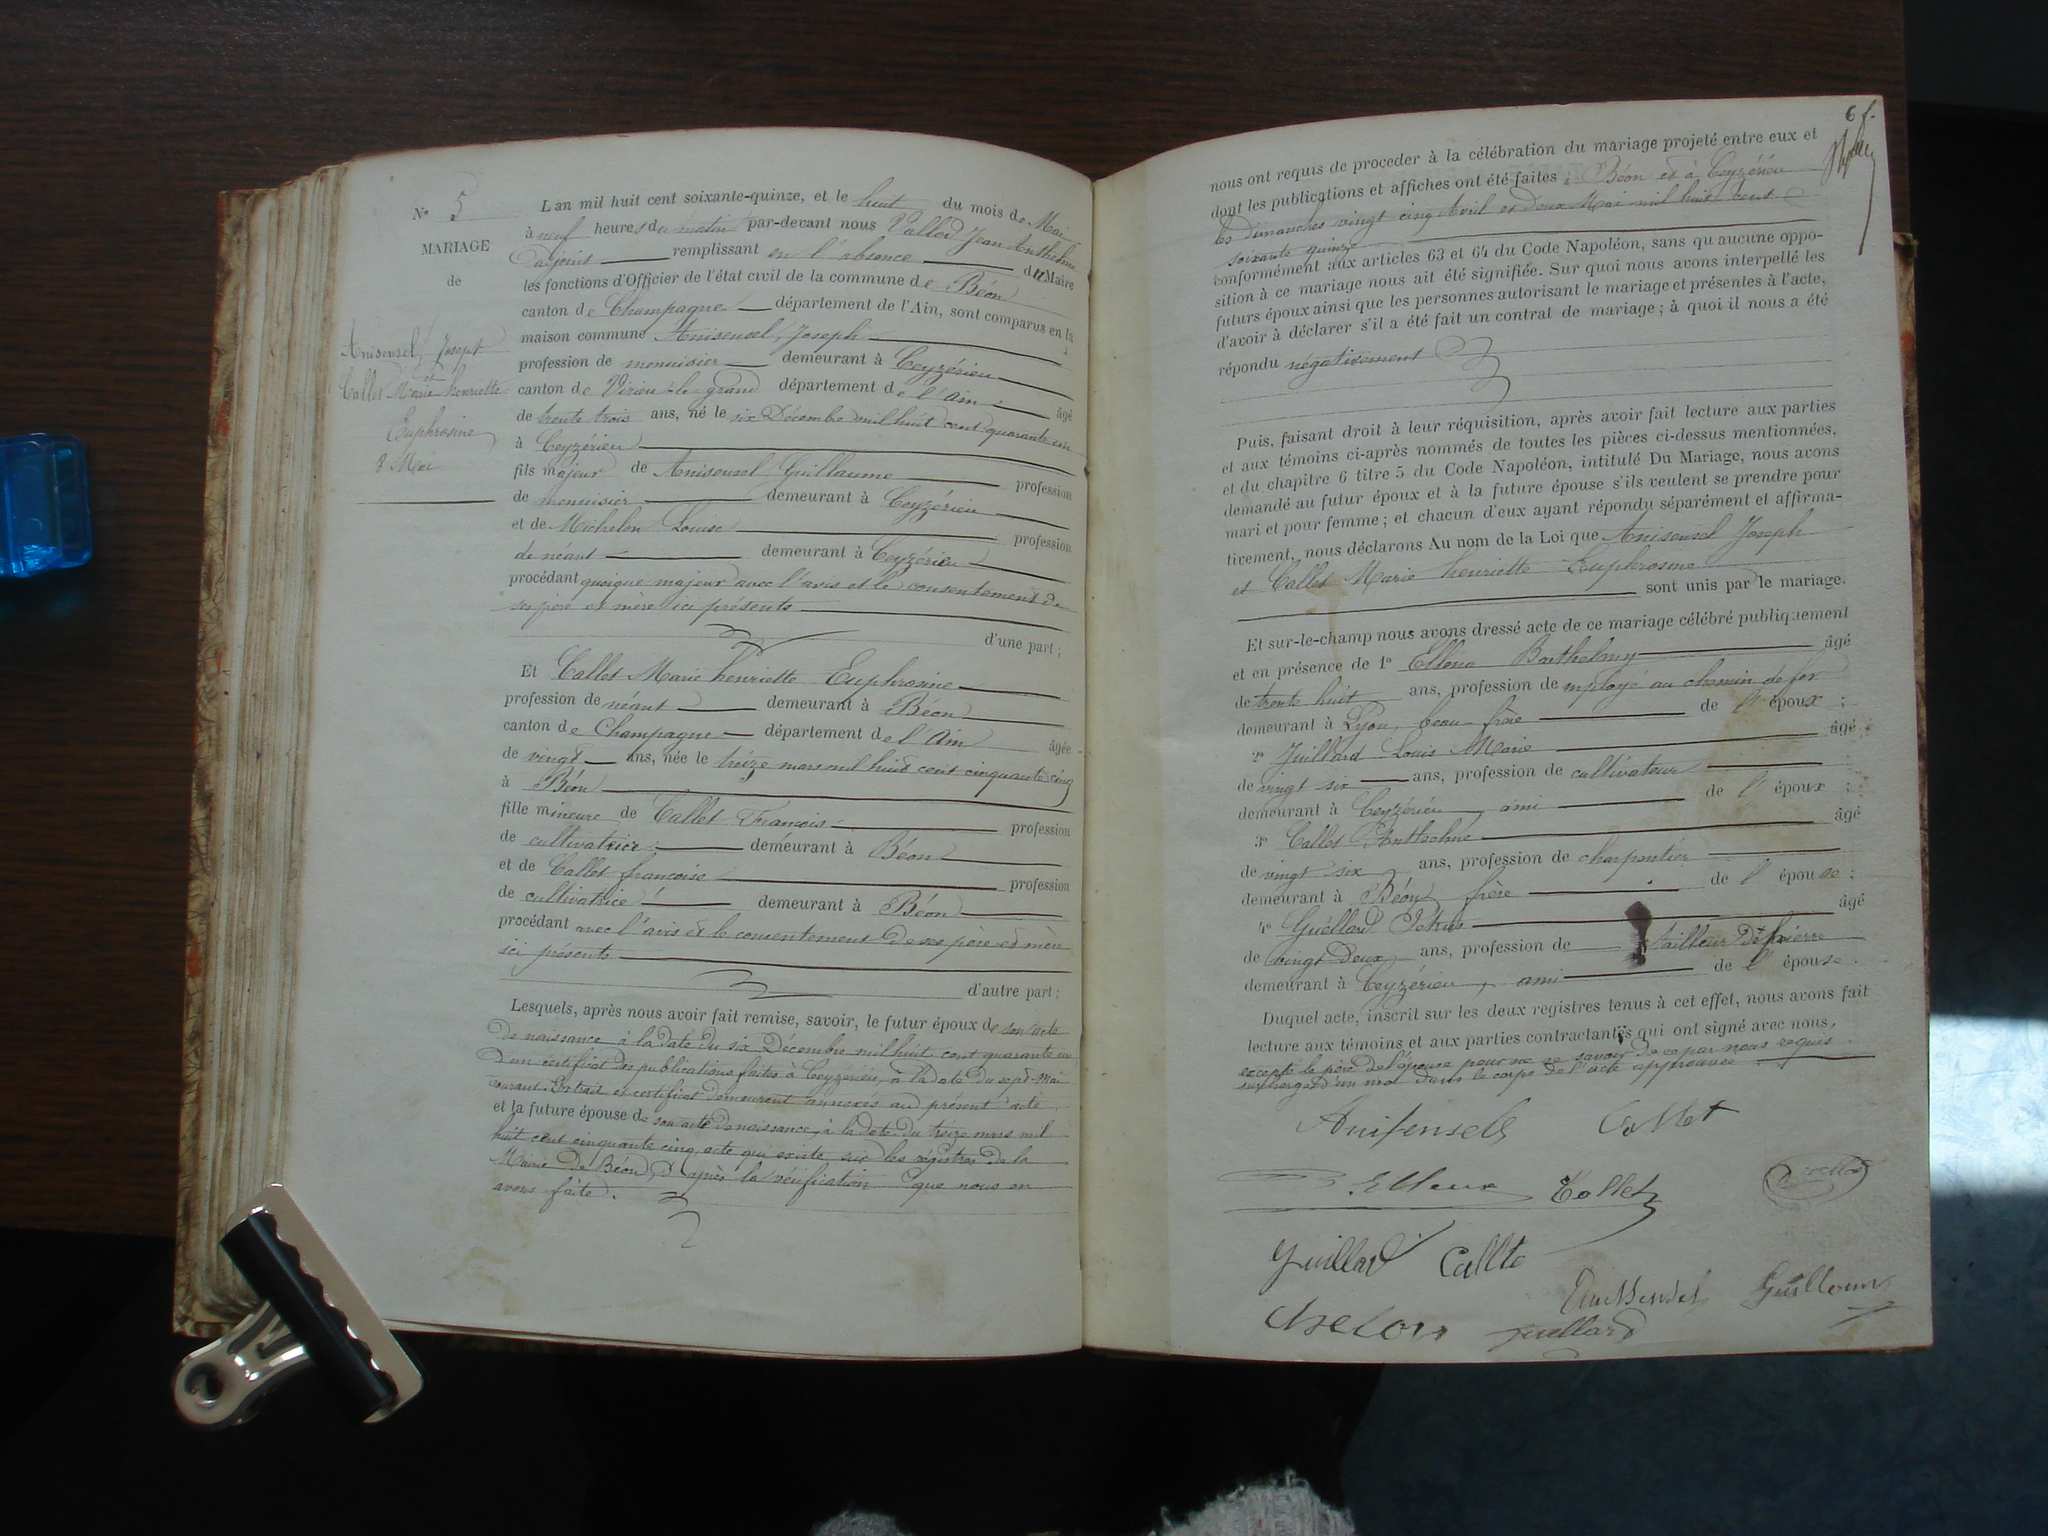 N° 5
MARIAGE
de
Anisensel Joseph
et
Callet Marie henriette
Euphrosine
8 Mai
L'an mil huit cent soixante-quinze, et le huit du mois de Mai
à neuf heures du matin par-devant nous Callet Jean Anthelme
adjoint remplissant en l'absence du Maire
les fonctions d'Officier de l'état civil de la commune de Béon
canton de Champagne département de l'Ain, sont comparus en la
maison commune Anisensel Joseph
profession de menuisier demeurant à Ceyzérieu
canton de Virieu-le-grand département de l'Ain âgé
de trente trois ans, né le six Décembre mil huit cent quarante un
à Ceyzérieu
fils majeur de Anisensel Guillaume profession
de menuisier demeurant à Ceyzérieu
et de Michelon Louise profession
de néant demeurant à Ceyzérieu
procédant quoique majeur avec l'avis et le consentement de
ses père et mère ici présents
d'une part ;
Et Callet Marie henriette Euphrosine
profession de néant demeurant à Béon
canton de Champagne département de l'Ain âgée
de vingt ans, née le treize mars mil huit cent cinquante cinq
à Béon
fille mineure de Callet François profession
de cultivatrice demeurant à Béon
et de Callet françoise profession
de cultivatrice demeurant à Béon
procédant avec l'avis et le consentement de ses père et mère
ici présents
d'autre part ;
Lesquels, après nous avoir fait remise, savoir, le futur époux de son acte
de naissance à la date du six Décembre mil huit cent quarante un
d'un certificat des publications faites à Ceyzérieu, à la date du sept Mai
courant. Extrait et certificat demeurent annexés au présent acte
et la future épouse de son acte de naissance, à la date du treize mars mil
huit cent cinquante cinq, acte qui existe sur les régistres de la
Mairie de Béon, d'après la vérification que nous en
avons faite.
6 f.
nous ont requis de proceder à la célébration du mariage projeté entre eux et
dont les publications et affiches ont été faites à Béon et à Ceyzérieu
les dimanches vingt cinq Avril et deux Mai mil huit cent
soixante quinze
conformément aux articles 63 et 64 du Code Napoléon, sans qu'aucune oppo-
sition à ce mariage nous ait été signifiée. Sur quoi nous avons interpellé les
futurs époux ainsi que les personnes autorisant le mariage et présentes à l'acte,
d'avoir à déclarer s'il a été fait un contrat de mariage ; à quoi il nous a été
répondu négativement
Puis, faisant droit à leur réquisition, après avoir fait lecture aux parties
et aux témoins ci-après nommés de toutes les pièces ci-dessus mentionnées,
et du chapitre 6 titre 5 du Code Napoléon, intitulé Du Mariage, nous avons
demandé au futur époux et à la future épouse s'ils veulent se prendre pour
mari et pour femme ; et chacun d'eux ayant répondu séparément et affirma-
tivement, nous déclarons Au nom de la Loi que Anisensel Joseph
et Callet Marie henriette Euphrosine
sont unis par le mariage.
Et sur-le-champ nous avons dressé acte de ce mariage célébré publiquement
et en présence de 1° Ellena Barthelemy âgé
de trente huit ans, profession de employé au chemin de fer
demeurant à Lyon, beau-frère de l'époux ;
2° Juillard Louis Marie âgé
de vingt six ans, profession de cultivateur
demeurant à Ceyzérieu, ami de l'époux ;
3° Callet Anthelme âgé
de vingt six ans, profession de charpentier
demeurant à Béon, frère de l'épouse ;
4° Guéllard Petrus âgé
de vingt deux ans, profession de tailleur de pierre
demeurant à Ceyzérieu, ami de l'épouse.
Duquel acte, inscrit sur les deux registres tenus à cet effet, nous avons fait
lecture aux témoins et aux parties contractantes qui ont signé avec nous,
excepté le père de l'épouse pour ne le savoir de ce par nous requis
surchargé d'un mot dans le corps de l'acte approuvée
Anisensels Callet
Ellena Collet
Juillard Callte
Guillaume
Guellard